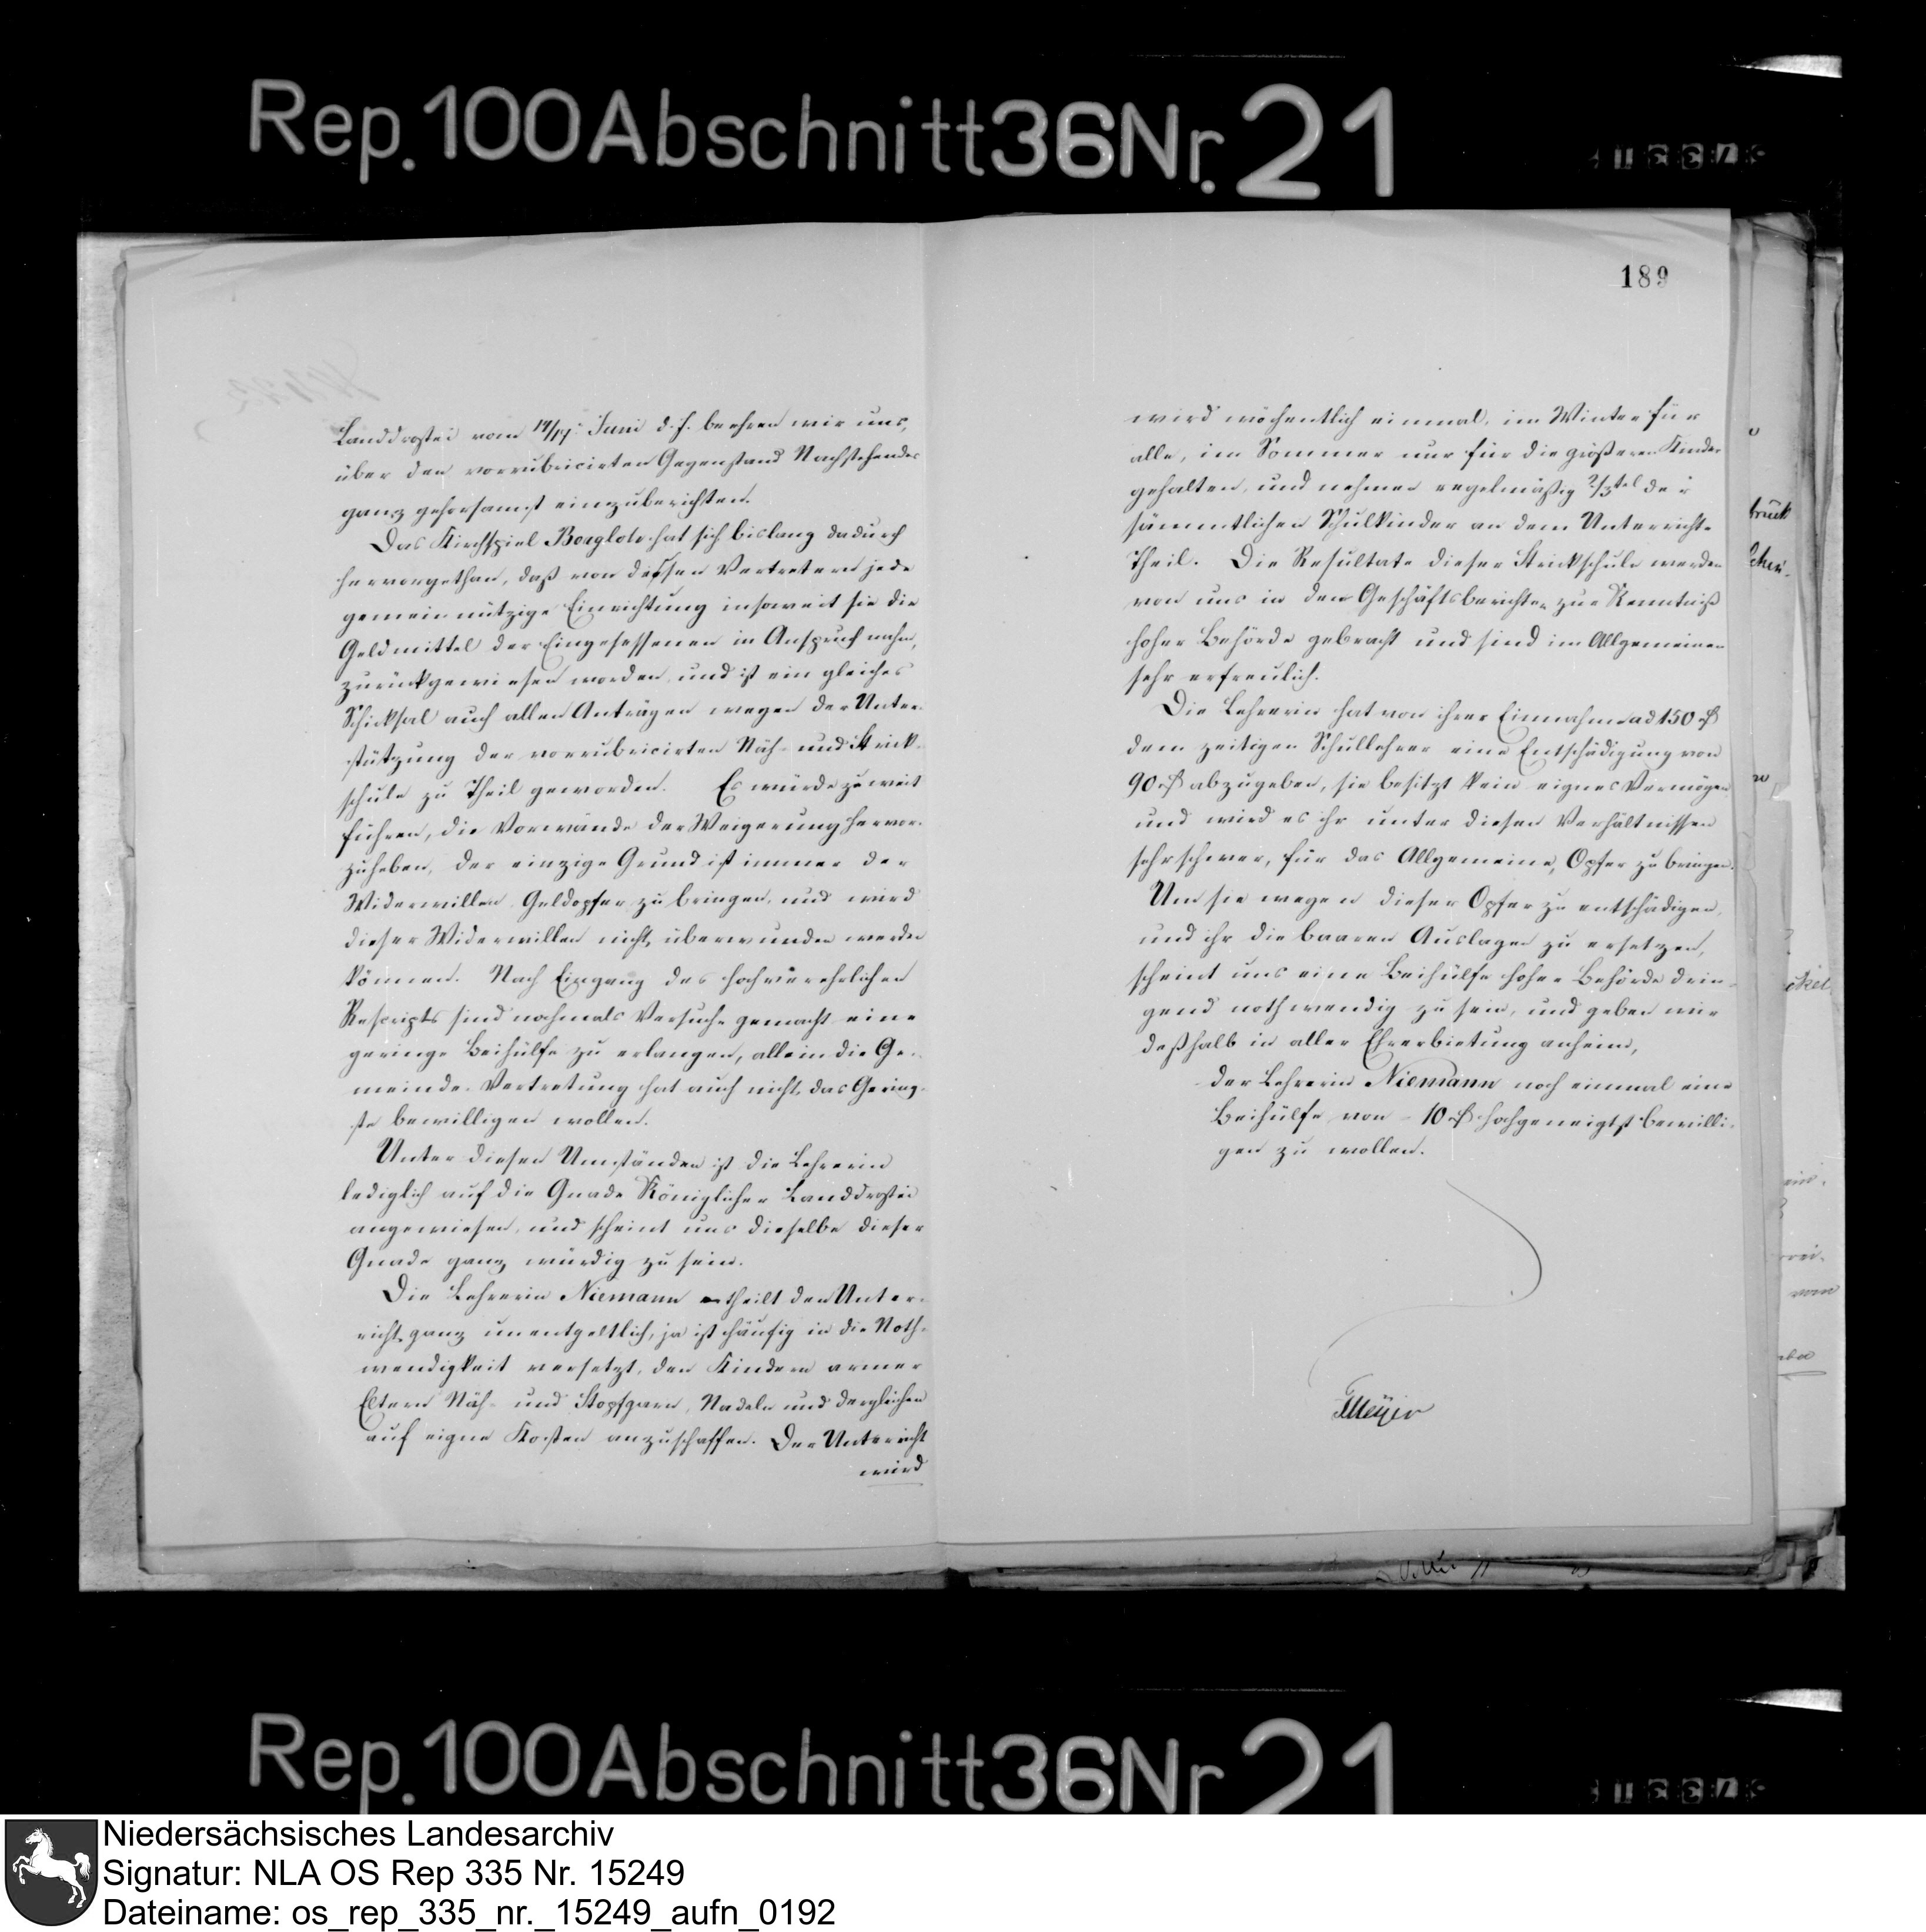 Rep. 100 Abschnitt 36 Nr. 21
189
Landdrostei vom 14/17. Juni d. J. beehren wir uns,
über den vorrubricirten Gegenstand Nachstehendes
ganz gehorsamst einzuberichten.
Das Kirchspiel Borgloh hat sich bislang dadurch
hervorgethan, daß von dessen Vertretern jede
gemeinnützige Einrichtung insoweit sie die
Geldmittel der Eingesessenen in Anspruch nahm,
zurückgewiesen worden und ist ein gleiches
Schicksal auch allen Anträgen wegen der Unter-
stützung der vorrubricirten Näh- und Strick-
schule zu Theil geworden. Es würde zu weit
führen, die Vorwände der Weigerung hervor-
zuheben, der einzige Grund ist immer der
Widerwillen Geldopfer zu bringen, und wird
dieser Widerwillen nicht überwunden werden
können. Nach Eingang des hochverehrlichen
Rescripts sind nochmals Versuche gemacht eine
geringe Beihülfe zu erlangen, allein die Ge-
meinde-Vertretung hat auch nicht das Gering-
ste bewilligen wollen.
Unter diesen Umständen ist die Lehrerin
lediglich auf die Gnade Königlicher Landdrostei
angewiesen, und scheint uns dieselbe dieser
Gnade ganz würdig zu sein.
Die Lehrerin Niemann ertheilt den Unter-
richt ganz unentgeltlich, ja ist häufig in die Noth-
wendigkeit versetzt, den Kindern armer
Eltern Näh- und Stopfgarn, Nadeln und dergleichen
auf eigne Kosten anzuschaffen. Der Unterricht
wird
wird wöchentlich einmal, im Winter für
alle, im Sommer nur für die größeren Kinder
gehalten, und nehmen regelmäßig 2/3tel der
sämmtlichen Schulkinder an dem Unterrichte
Theil. Die Resultate dieser Strickschule werden
von uns in den Geschäftsberichten zur Kenntniß
hoher Behörde gebracht und sind im Allgemeinen
sehr erfreulich.
Die Lehrerin hat von ihrer Einnahme ad 150 rß
dem zeitigen Schullehrer eine Entschädigung von
90 rß abzugeben, sie besitzt kein eignes Vermögen
und wird es ihr unter diesen Verhältnissen
sehr schwer, für das Allgemeine, Opfer zu bringen.
Um sie wegen dieser Opfer zu entschädigen,
und ihr die baaren Auslagen zu ersetzen,
scheint uns eine Beihülfe hoher Behörde drin-
gend nothwendig zu sein, und geben wir
deßhalb in aller Ehrerbietung anheim,
der Lehrerin Niemann noch einmal eine
Beihülfe von - 10 rß hochgeneigtst bewilli-
gen zu wollen.
Meyer
Rep. 100 Abschnitt 36 Nr. 21
Niedersächsisches Landesarchiv
Signatur: NLA OS Rep 335 Nr. 15249
Dateiname: os_rep_335_nr._15249_aufn_0192